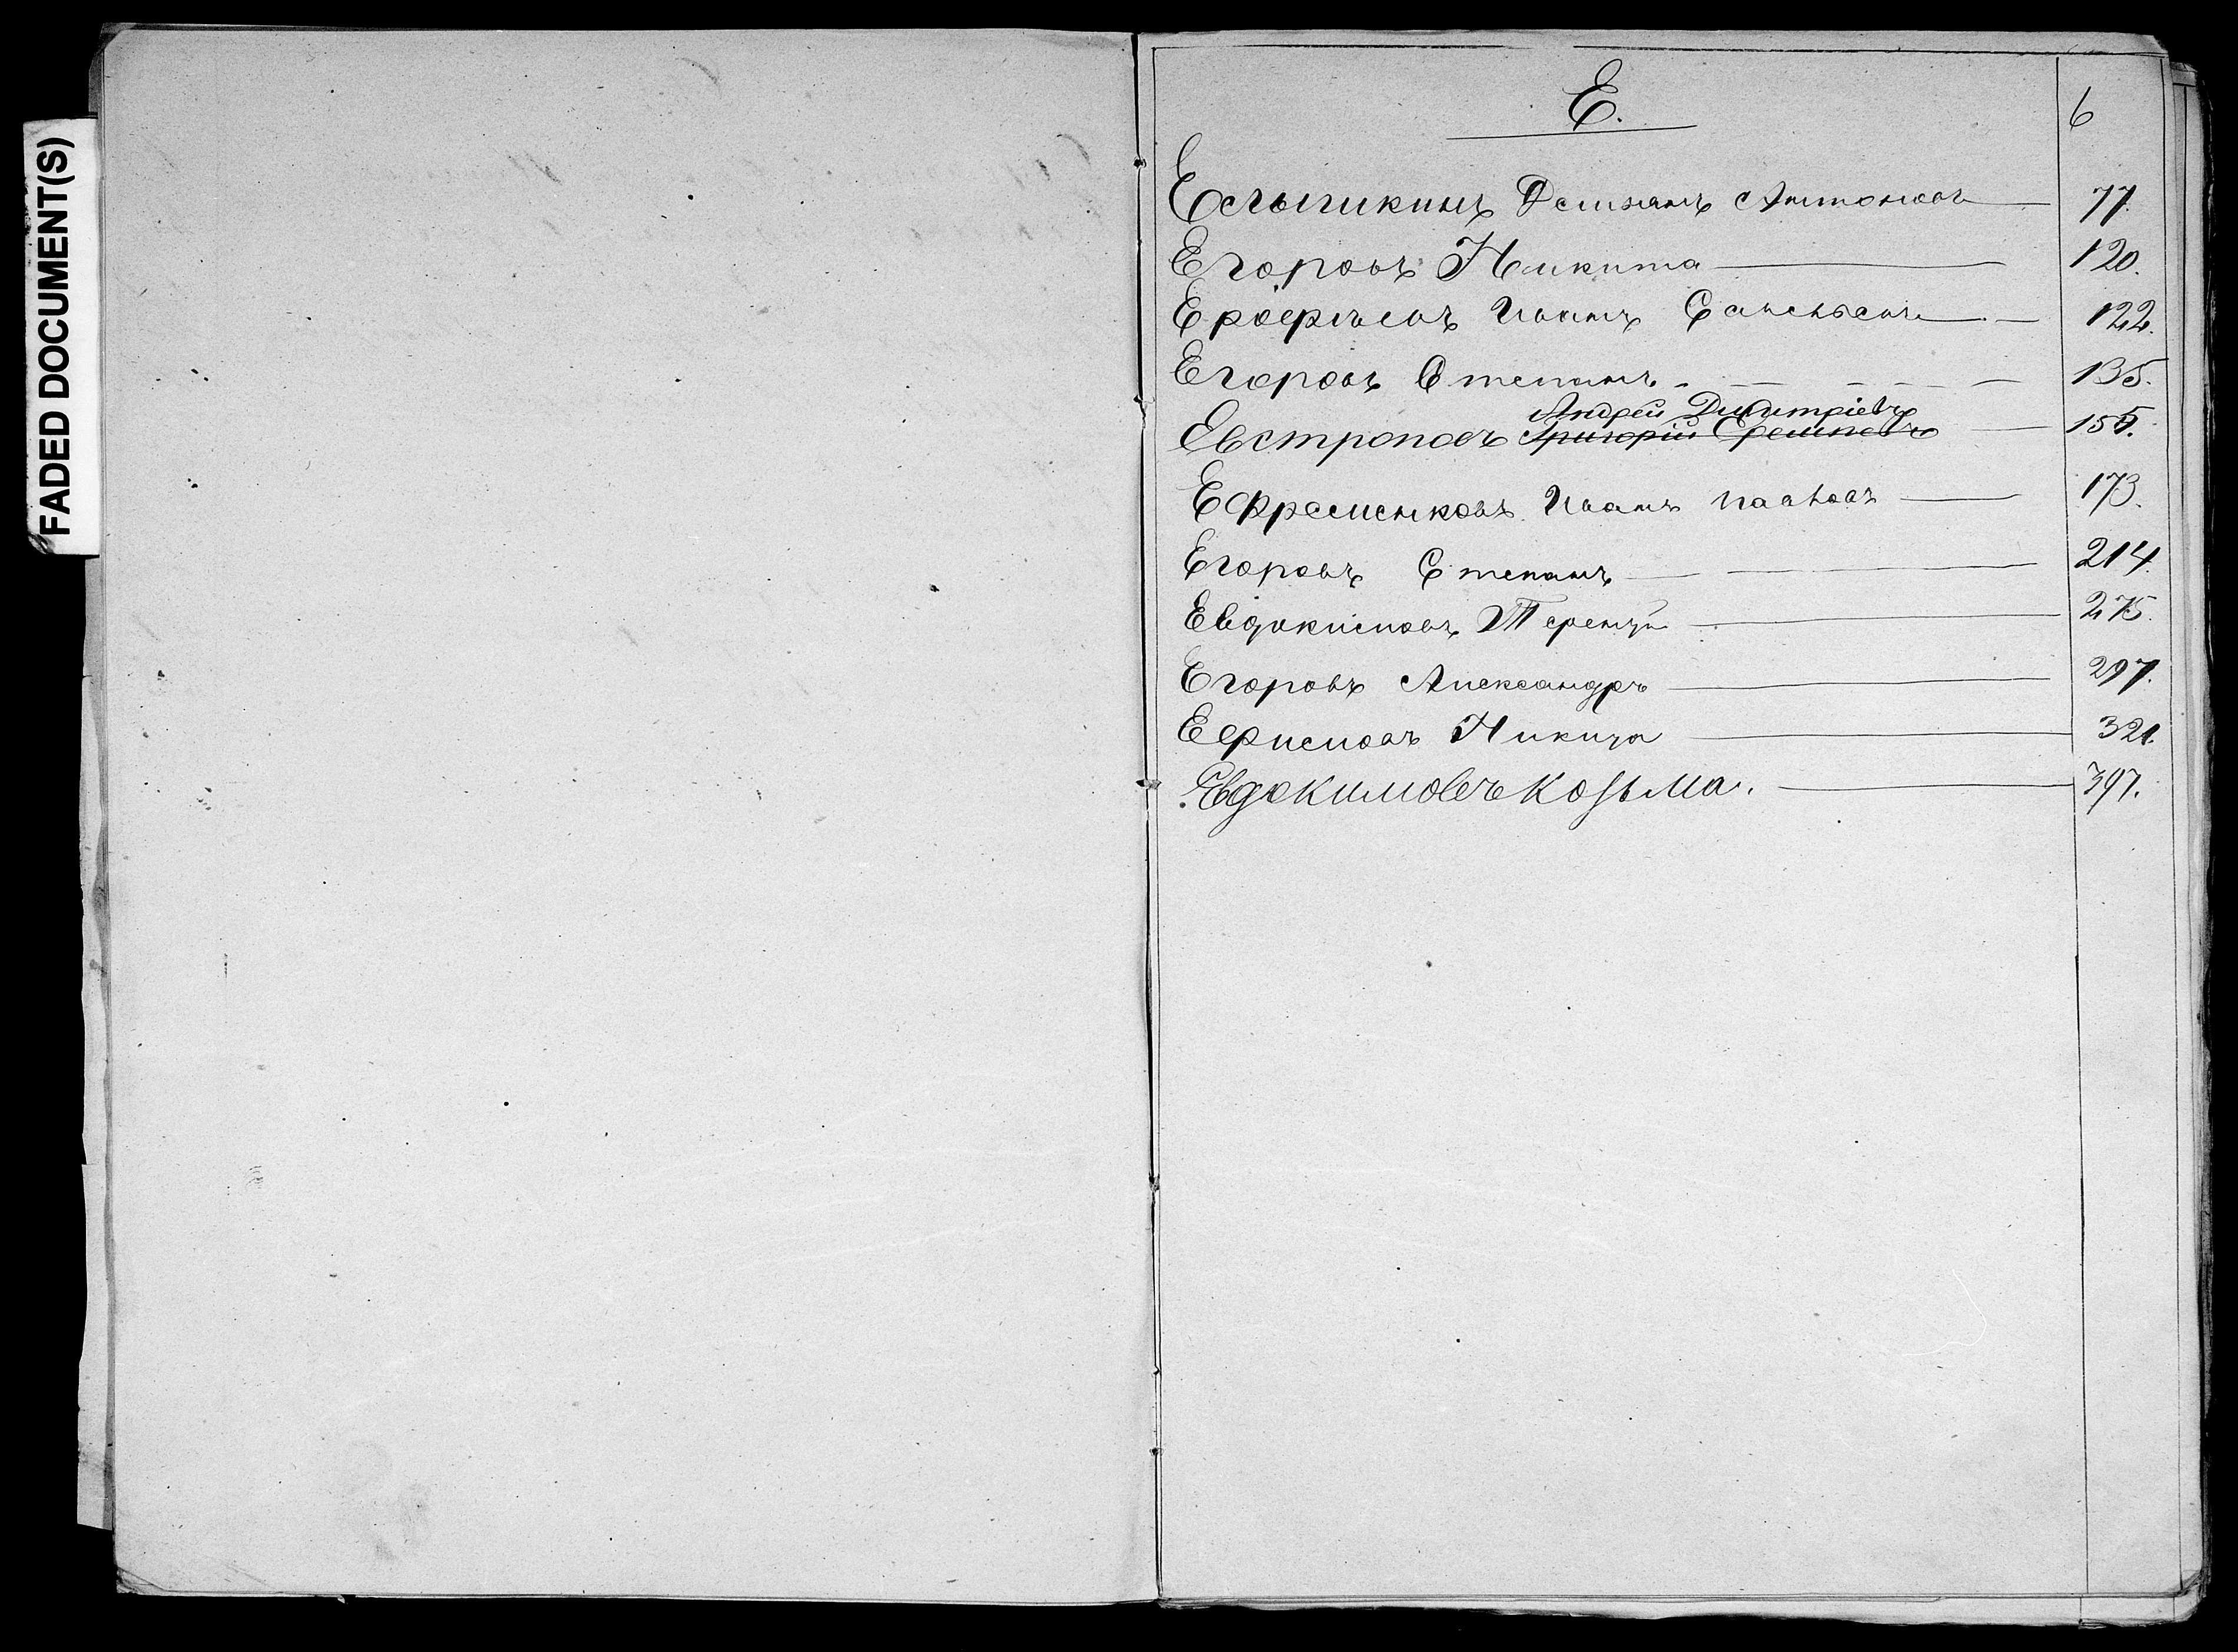 FADED DOCUMENT(S)
Е.
6
Демьянъ Антоновъ 77.
Егоровъ Никита 120.
Ерофѣевъ Иванъ Савельевъ 122.
Егоровъ Степанъ 135.
Андрей Димитріевъ
Евстроповъ Григорій Еремѣевъ 155.
Ефременковъ Иванъ Павловъ 173.
Егоровъ Степанъ 214.
Евдокимовъ Терентій 275.
Егоровъ Александръ 297.
Ефимовъ Никита 321.
Евдокимовъ Козьма. 397.